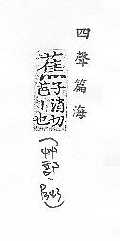 四聲篇海
蕉子消切芭丨也(艸部